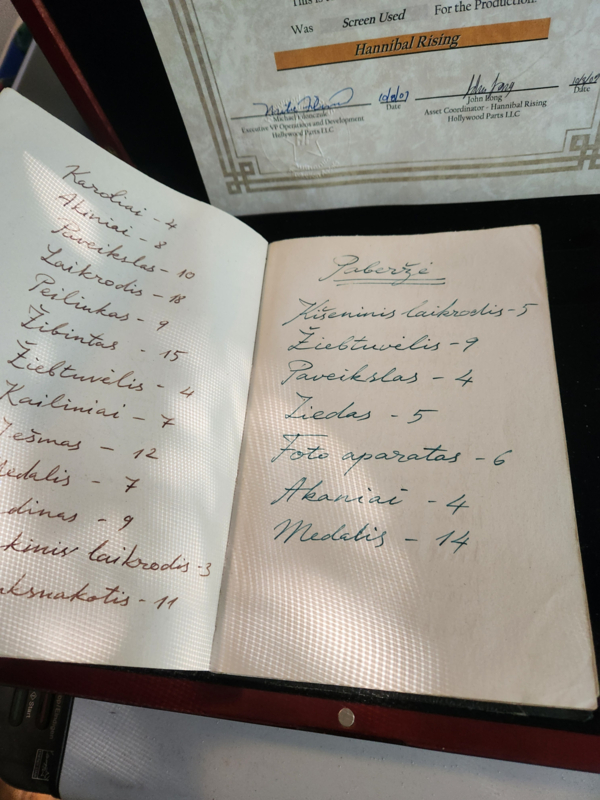 Was Screen Used For the Production:
Hannibal Rising
10/8/07
Date
Date
Executive VP Operations and Development
Hollywood Parts LLC
John Long
Asset Coordinator - Hannibal Rising
Hollywood Parts LLC
Karoliai - 4
Akiniai - 8
Paveikslas - 10
Laikrodis - 18
Peiliukas - 9
Žibintas - 15
Žiebtuvėlis - 4
Kailiniai - 7
- 12
- 7
- 9
laikrodis - 3
- 11
Paberžė
Kišeninis laikrodis - 5
Žiebtuvėlis - 9
Paveikslas - 4
Žiedas - 5
Foto aparatas - 6
Akaniai - 4
Medalis - 14